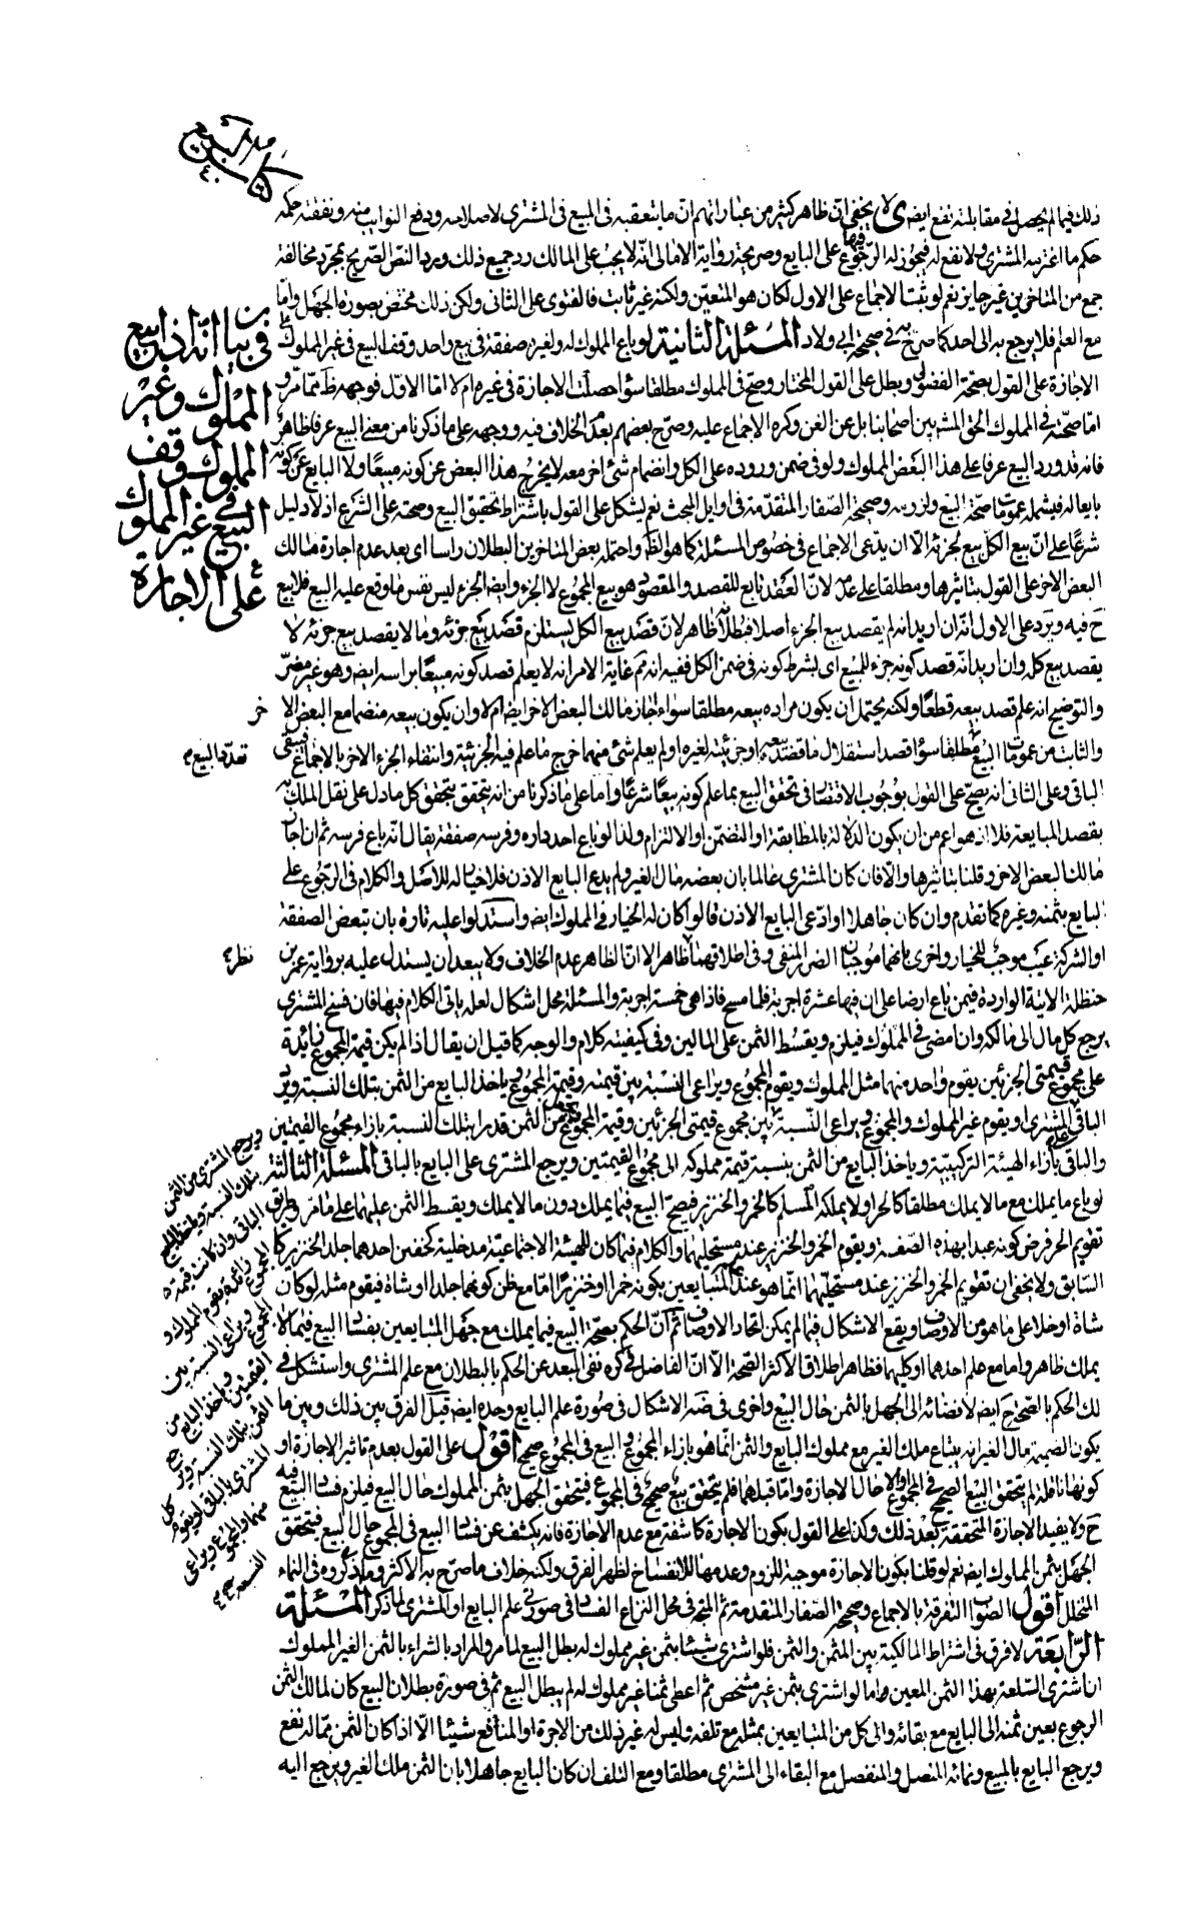 كتاب البيع
ذلك فيما لم يحصل في مقابلته نفع ايضا لا يخفى ان ظاهر كثير من عباراتهم ان ما يتعقبه في المبيع في المشتري لاصلاحه ودفع النوايب منه ونفقته حكمه
حكم ما اغترمه المشتري ولا نفع له فيجوز له الرجوع فيها على البايع وصريحة رواية الامالى انه لا يجب على المالك رد جميع ذلك ويرد النص الصريح بمجرد مخالفة
جمع من المتاخرين غير جايز نعم لو ثبت الاجماع على الاول لكان هو المتعين ولكنه غير ثابت فالفتوى على الثانى ولكن ذلك مختص بصورة الجهل واما
مع العلم فلا يرجع به الى احد كما صرح به في صحيحة ابي ولاد المسئلة الثانية لو باع المملوك له ولغيره صفقة في بيع واحد وقف البيع في غير المملوك على
الاجازة على القول بصحة الفضولى وبطل على القول المختار وصح فى المملوك مطلقا سواء حصلت الاجازة في غيره ام لا اما الاول فوجهه ظ مما مر و
اما صحته في المملوك الحق المشهور بين اصحابنا بل عن الغنية وكره الاجماع عليه وصرح بعضهم بعدم الخلاف فيه ووجهه على ما ذكرنا من معنى البيع عرفا ظاهر
فانه قد ورد البيع عرفا على هذا البعض المملوك ولو في ضمن وروده على الكل وانضمام شئ اخر معه لا يخرج هذا البعض عن كونه مبيعا ولا البايع عن كونه
بايعا له فيشمله عمومات صحة البيع ولزومه وصحيحة الصفار المتقدمة فى اوايل المبحث نعم يشكل على القول باشتراط تحقيق البيع وصحته على الشرع اذ لا دليل
شرعا على ان بيع الكل بيع لجزئه الا ان يدعى الاجماع في خصوص المسئلة كما هو الظ واحتمله بعض المتاخرين البطلان راسا اى بعد عدم اجازة مالك
البعض الاخر على القول بتاثيرها ومطلقا على عدمه لان العقد تابع للقصد والمقصود هو بيع المجموع لا الجزء وايضا الجزء ليس نفس ما وقع عليه البيع فلا بيع
ح فيه ويرد على الاول انه ان اريد انه لم يقصد بيع الجزء اصلا فبطلانه ظاهر لان قصد بيع الكل يستلزم قصد بيع جزئه وما لا يقصد بيع جزئه لا
يقصد بيع كله وان اريد انه قصد كونه جزء للمبيع اى بشرط كونه في ضمن الكل ففيه انه مم غاية الامر انه لا يعلم قصد كونه مبيعا براسه ايضا وهو غير مضر
والتوضيح انه علم قصد بيعه قطعا ولكنه يحتمل ان يكون مراده بيعه مطلقا سواء اجاز مالك البعض الاخر ايضا ام لا وان يكون بيعه منضما مع البعض الا
خر
والثابت من عمومات البيع مطلقا سواء قصد استقلال ما قصد بيعه او جزئيته لغيره او لم يعلم شئ منهما خرج ما علم فيه الجزئية وانتفاء الجزء الاخر بالاجماع فيبقى
الباقى وعلى الثانى انه يصح على القول بوجوب الاقتصار فى تحقق البيع بما علم كونه بيعا شرعا واما على ما ذكرنا من انه يتحقق بتحقق كل ما دل على نقل الملك به
بقصد المبايعة فلا اذ هو اعم من ان يكون الدلالة بالمطابقة او التضمن او الالتزام ولذا لو باع احد داره وفرسه صفقة يقال انه باع فرسه ثم ان اجاز
مالك البعض الاخر وقلنا بتاثيرها والا فان كان المشترى عالما بان بعضه مال الغير ولم يدع البايع الاذن فلا خيار له للاصل والكلام فى الرجوع على
البايع بثمنه وغيره كما تقدم وان كان جاهلا او ادعى البايع الاذن قالوا كان له الخيار فى المملوك ايضا واستدلوا عليه تارة بان تبعض الصفقة
او الشركة عيب موجب للخيار واخرى بانهما موجبان الضرر المنفى وفى اطلاقهما ظاهر الا ان الظاهر عدم الخلاف ولا يبعد ان يستدل عليه برواية عمر بن
حنظلة الاتية الواردة فيمن باع ارضا على ان فيها عشرة اجربة فلما مسح فاذا هى خمسة اجربة والمسئلة محل اشكال لعله ياتى الكلام فيها فان فسخ المشترى
يرجع كل مال الى مالكه وان امضى فى المملوك فيلزم ويقسط الثمن على المالين وفى كيفيته كلام والوجه كما قيل ان يقال اذا لم يكن قيمة المجموع زائدة
على مجموع قيمتى الجزئين يقوم واحد منهما مثل المملوك ويقوم المجموع ويراعى النسبة بين قيمته وقيمة المجموع وياخذ البايع من الثمن بتلك النسبة ويرد
الباقى للمشترى او يقوم غير المملوك والمجموع ويراعى النسبة بين مجموع قيمتى الجزئين وقيمة المجموع من الثمن قدرا بتلك النسبة بازاء مجموع القيمتين
والباقى بازاء الهيئة التركيبية وياخذ البايع من الثمن بنسبة قيمة مملوكه الى مجموع القيمتين ويرجع المشترى على البايع بالباقى المسئلة الثالثة
لو باع ما يملك مع ما لا يملك مطلقا كالحر او لا يملكه المسلم كالخمر والخنزير فيصح البيع فيما يملك دون ما لا يملك ويقسط الثمن عليهما على ما مر وطريق
تقويم الحر فرض كونه عبدا بهذه الصفة ويقوم الخمر والخنزير عند مستحليهما والكلام فيما كان للهيئة الاجتماعية مدخلية كخفين احدهما جلد الخنزير كما
السابق ولا يخفى ان تقويم الخمر والخنزير عند مستحليهما انما هو عند علم المتبايعين بكونه خمرا او خنزيرا اما مع ظن كونهما جلدا او شاة فيقوم مثله لو كان
شاة او خلا على ما هو من الاوصاف ويقع الاشكال فيما لم يمكن اتحاد الاوصاف ثم ان الحكم بصحة البيع فيما يملك مع جهل المتبايعين بفساد البيع فيما لا
يملك ظاهر واما مع علم احدهما او كليهما فظاهر اطلاق الاكثر الصحة الا ان الفاضل فى كره نفى البعد عن الحكم بالبطلان مع علم المشترى واستشكل فى
لك الحكم بالصحة ح ايضا لافضائه الى الجهل بالثمن حال البيع واخرى فى ضه الاشكال فى صورة علم البايع وحده ايضا قيل الفرق بين ذلك وبين ما
يكون الضميمة مال الغير انه يبتاع ملك الغير مع مملوك البايع والثمن انما هو بازاء المجموع والبيع فى المجموع صحيح اقول على القول بعدم تاثير الاجازة او
كونها ناقلة لم يتحقق البيع الصحيح فى المجموع اولا حال الاجازة واما قبلها فلم يتحقق بيع صحيح فى المجموع فيتحقق الجهل بثمن المملوك حال البيع فيلزم فساد البيع فيه
ح ولا يفيد الاجازة المتحققة بعد ذلك وكذا على القول بكون الاجازة كاشفة مع عدم الاجازة فانه يكشف عن فساد البيع فى المجموع حال البيع فيتحقق
الجهل بثمن المملوك ايضا نعم لو قلنا بكون الاجازة موجبة للزوم وعدمها للانفساخ لظهر الفرق ولكنه خلاف ما صرح به الاكثر وما ذكروه فى النماء
المتخلل اقول الصواب التفرقة بالاجماع وصحيحة الصفار المتقدمة ثم المتجه فى محل النزاع الفساد فى صورتى علم البايع او المشترى لما ذكر المسئلة
الرابعة لا فرق فى اشتراط المالكية بين المثمن والثمن فلو اشترى شيئا بثمن غير مملوك له بطل البيع لما مر والمراد بالشراء بالثمن الغير المملوك
ان اشترى السلعة بهذا الثمن المعين واما لو اشترى بثمن غير مشخص ثم اعطى ثمنا غير مملوك له لم يبطل البيع ثم فى صورة بطلان البيع كان لمالك الثمن
الرجوع بعين ثمنه الى البايع مع بقائه والى كل من المتبايعين بمثله مع تلفه وليس له غير ذلك من الاجرة او المنافع شيئا الا اذا كان الثمن مما له نفع
ويرجع البايع بالمبيع ونمائه المتصل والمنفصل مع البقاء الى المشترى مطلقا ومع التلف ان كان البايع جاهلا بان الثمن ملك الغير ويرجع اليه
في بيان انه اذا بيع
المملوك وغير
المملوك وقف
البيع في غير المملوك
على الاجازة
نظر
ويرجع المشترى من الثمن
بتلك النسبة وياخذ البايع
الباقى وان كانت قيمة
المجموع زائدة يقوم المملوك و
المجموع ويراعى النسبة بين
القيمتين وياخذ البايع من
الثمن بتلك النسبة ويرجع
المشترى بالباقى او يقوم كل
منهما والمجموع ويراعى
النسبة